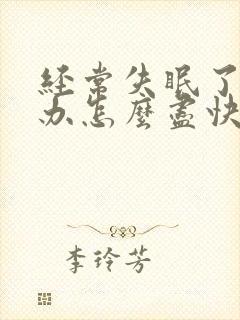 经常失眠了
办怎麽盡快
李玲芳